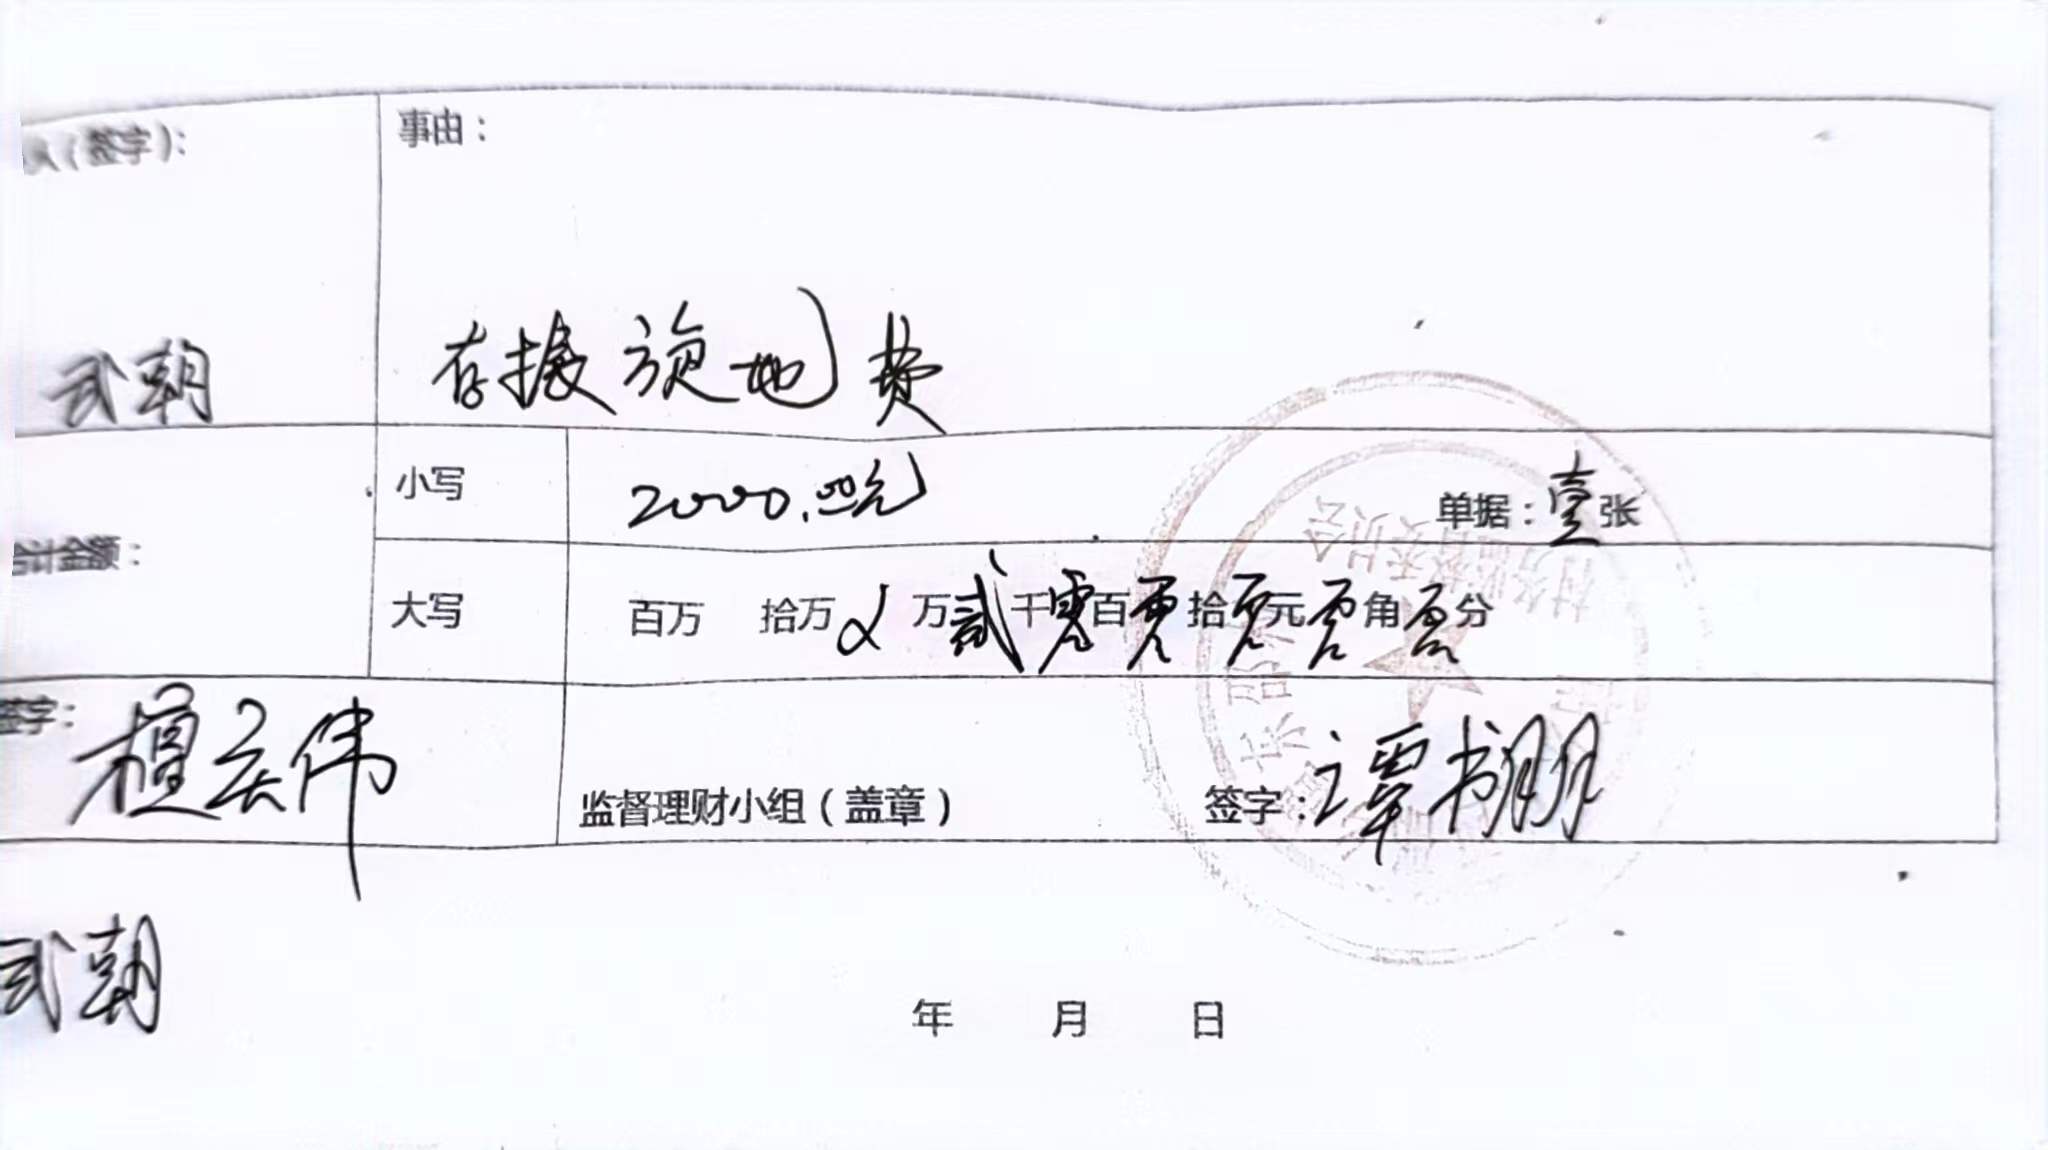 （签字）：
事由：
武朝
存接旋地费
小写
2000.00元
单据：壹张
合计金额：
大写
百万 拾万 万贰千零百零拾零元零角零分
签字：
檀云伟
监督理财小组（盖章）
签字：谭书朋
武朝
年 月 日
村务监督委员会